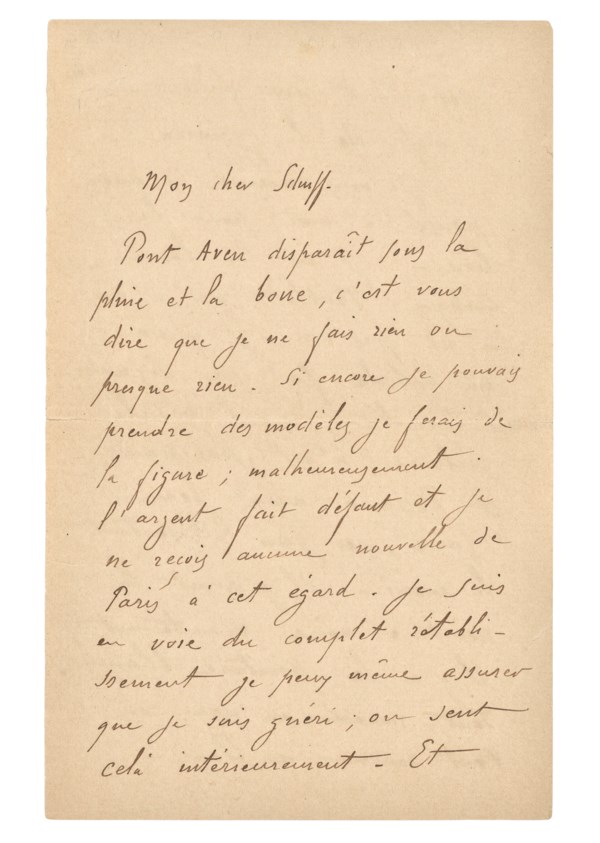 Mon cher Schuff.
Pont Aven disparaît sous la
pluie et la boue, c'est vous
dire que je ne fais rien ou
presque rien. Si encore je pouvais
prendre des modèles je ferais de
la figure ; malheureusement
l'argent fait défaut et je
ne reçois aucune nouvelle de
Paris à cet égard. Je suis
en voie du complet rétabli-
ssement je peux même assurer
que je suis guéri ; on sent
celà intérieurement - Et